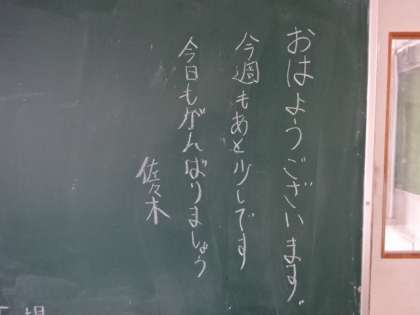 おはようございます。
今週もあと少しです
今日もがんばりましょう
佐々木